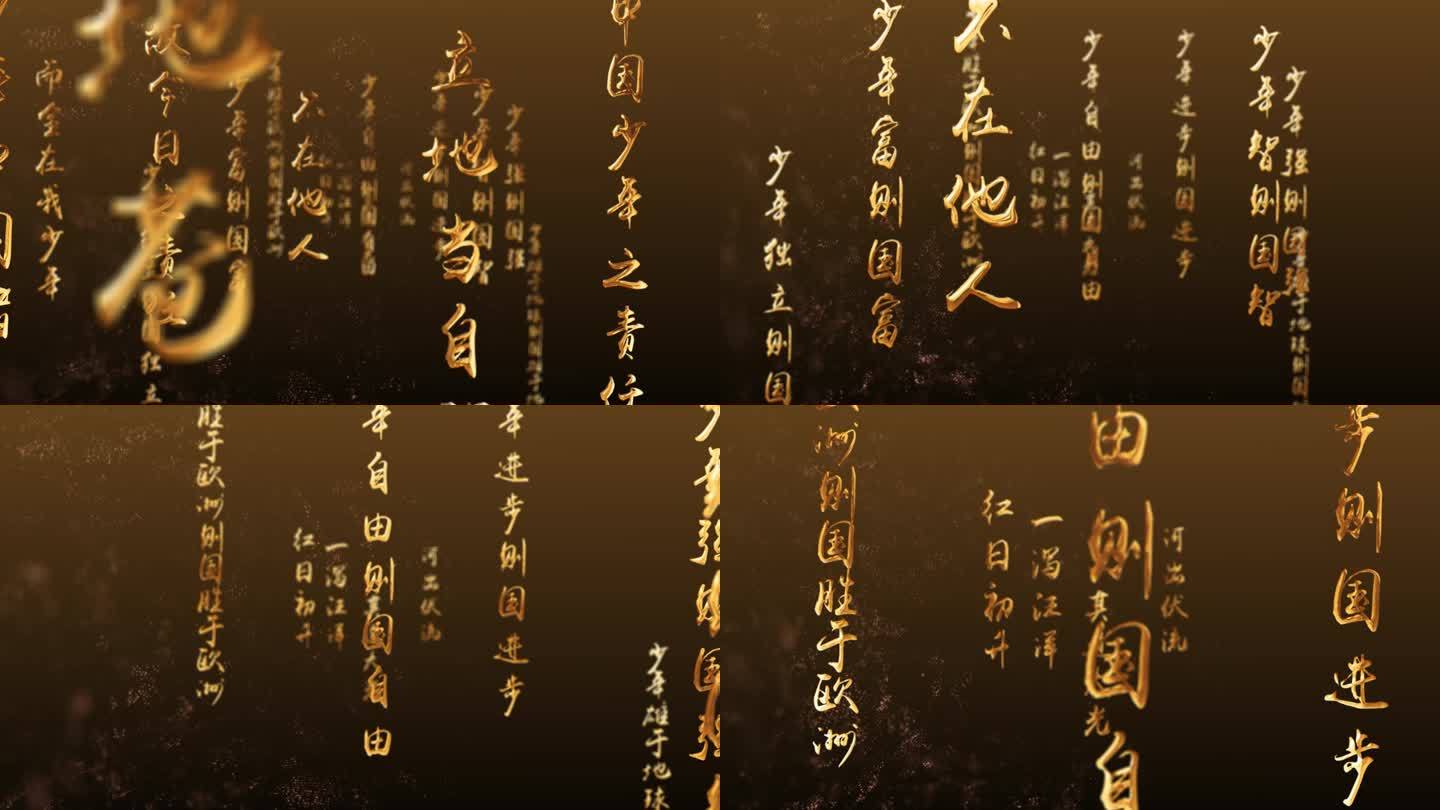 中国少年之责任
少年强则国强
少年智则国智
立地当自
少年自由则国自由
不在他人
少年富则国富
故今日之责任
地苍
独立
而全在我少年
少年强则国强
于地球则国
少年智则国智
少年进步则国进步
河出伏流
少年自由则国自由
一泻汪洋
红日初升
不在他人
少年富则国富
少年独立则国
少年强则国强
少年雄于地球
年进步则国进步
河出伏流
年自由则国自由
一泻汪洋
红日初升
胜于欧洲则国胜于欧洲
步则国进步
河出伏流
由则国自
其光
一泻汪洋
红日初升
洲则国胜于欧洲